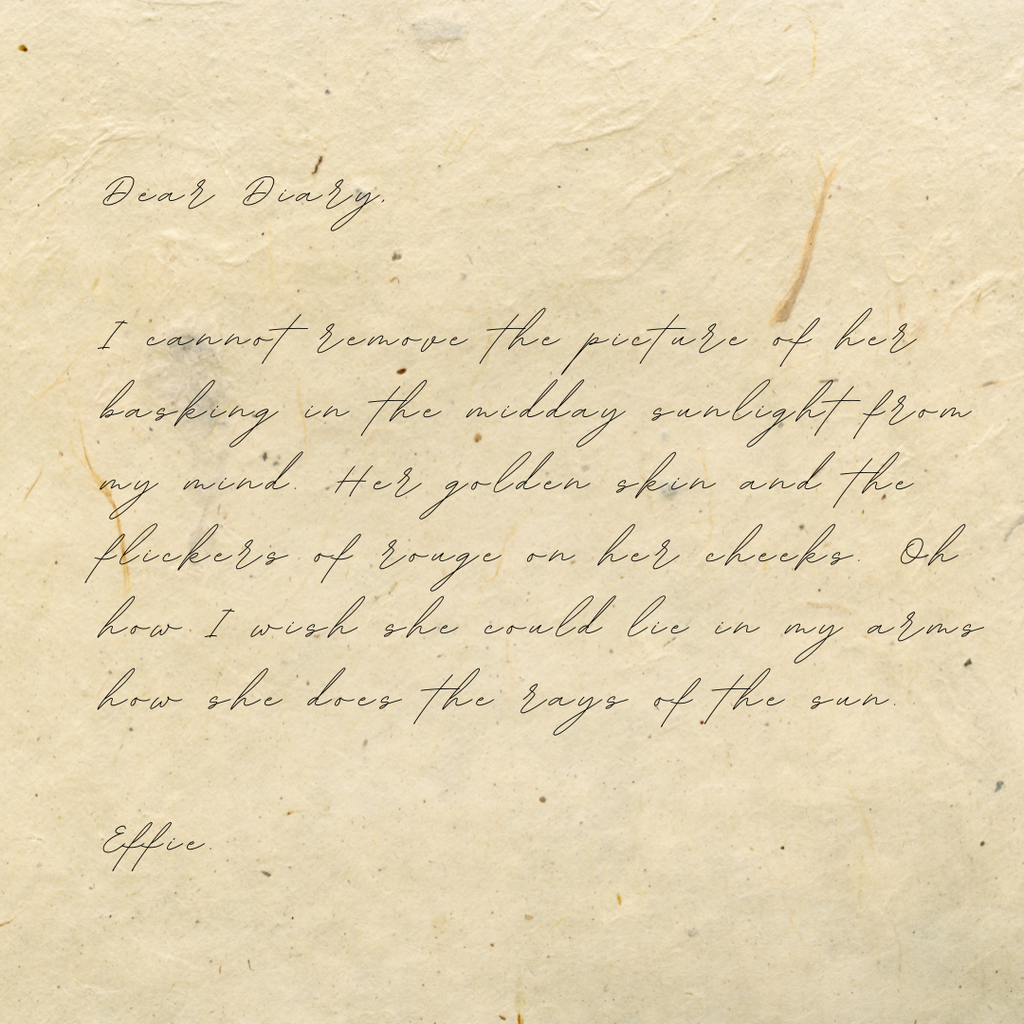 Dear Diary,
I cannot remove the picture of her
basking in the midday sunlight from
my mind. Her golden skin and the
flickers of rouge on her cheeks. Oh
how I wish she could lie in my arms
how she does the rays of the sun.
Effie.